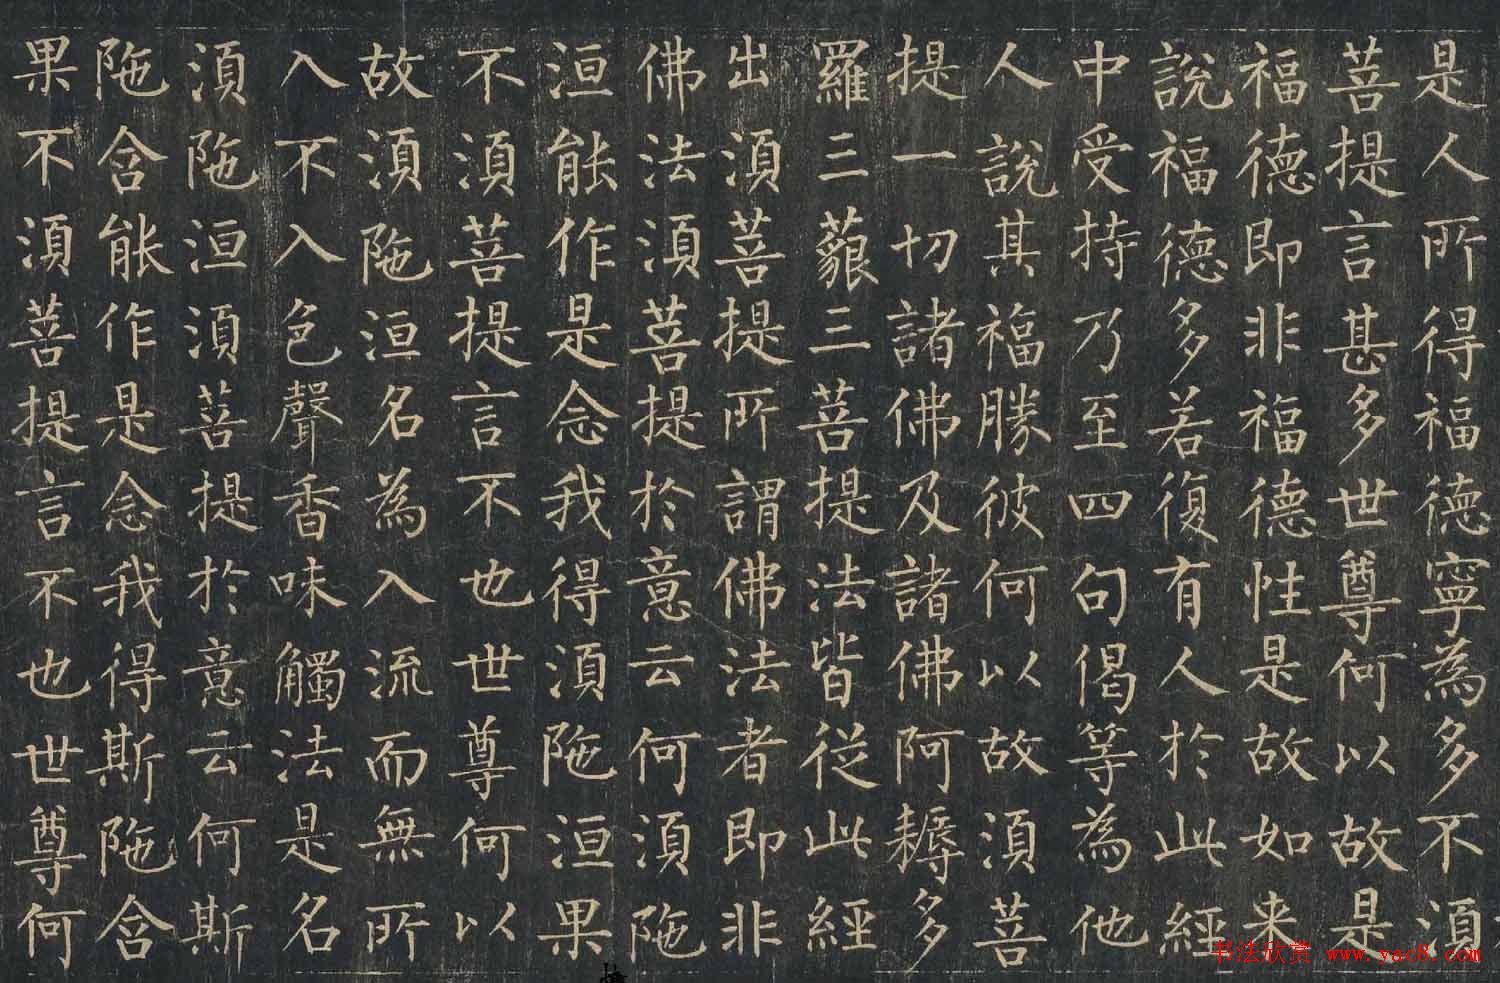 是人所得福德寧為多不須
菩提言甚多世尊何以故是
福德即非福德性是故如来
說福德多若復有人於此經
中受持乃至四句偈等為他
人說其福勝彼何以故須菩
提一切諸佛及諸佛阿耨多
羅三藐三菩提法皆從此經
出須菩提所謂佛法者即非
佛法須菩提於意云何須陁
洹能作是念我得須陁洹果
不須菩提言不也世尊何以
故須陁洹名為入流而無所
入不入色聲香味觸法是名
須陁洹須菩提於意云何斯
陁含能作是念我得斯陁含
果不須菩提言不也世尊何
书法欣赏 www.yac8.com